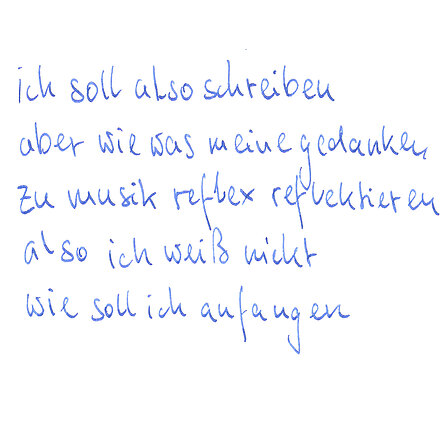 ich soll also schreiben
aber wie was meine gedanken
zu musik reflex reflektieren
also ich weiß nicht
wie soll ich anfangen